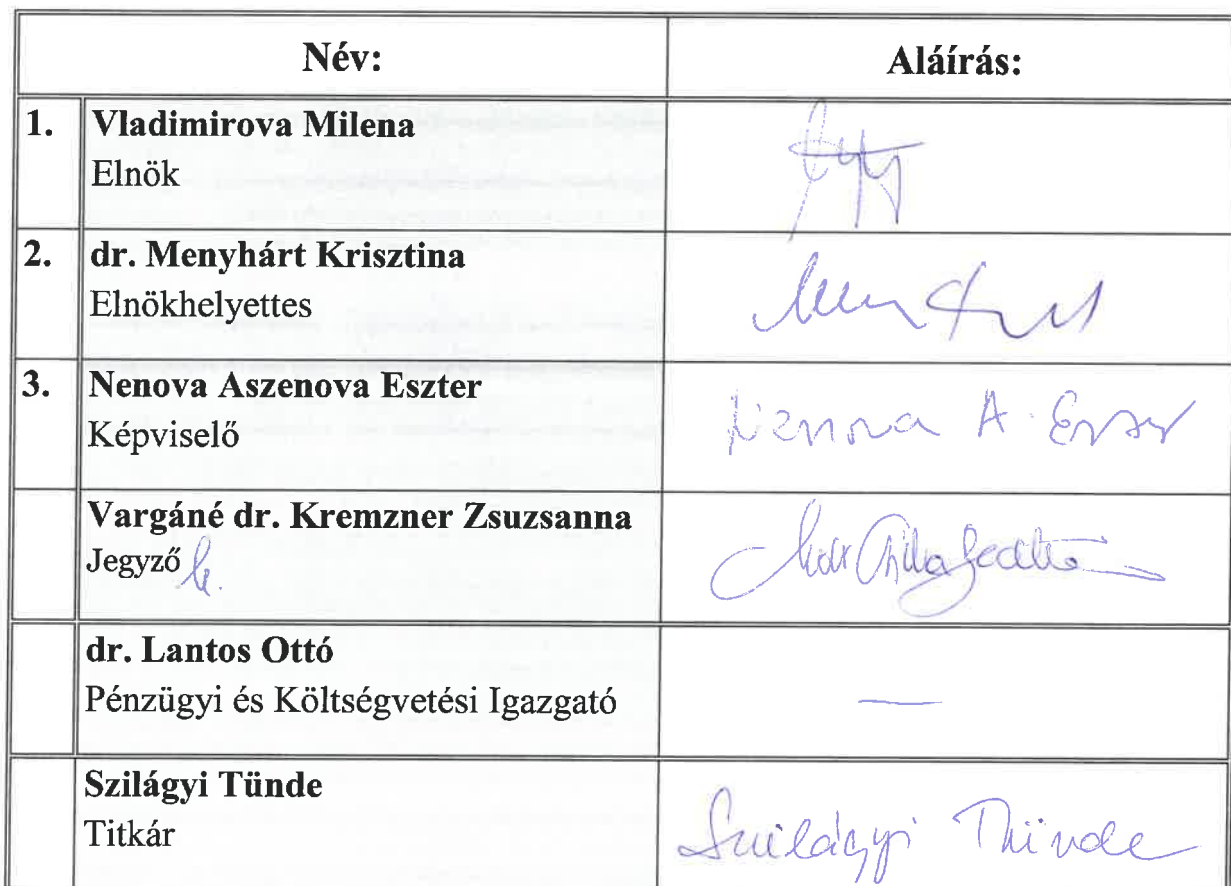 Név: Aláírás:
1. Vladimirova Milena
Elnök
2. dr. Menyhárt Krisztina
Elnökhelyettes
3. Nenova Aszenova Eszter
Képviselő
Nenova A. Eszter
Vargáné dr. Kremzner Zsuzsanna
Jegyző h.
dr. Lantos Ottó
Pénzügyi és Költségvetési Igazgató
—
Szilágyi Tünde
Titkár
Szilágyi Tünde